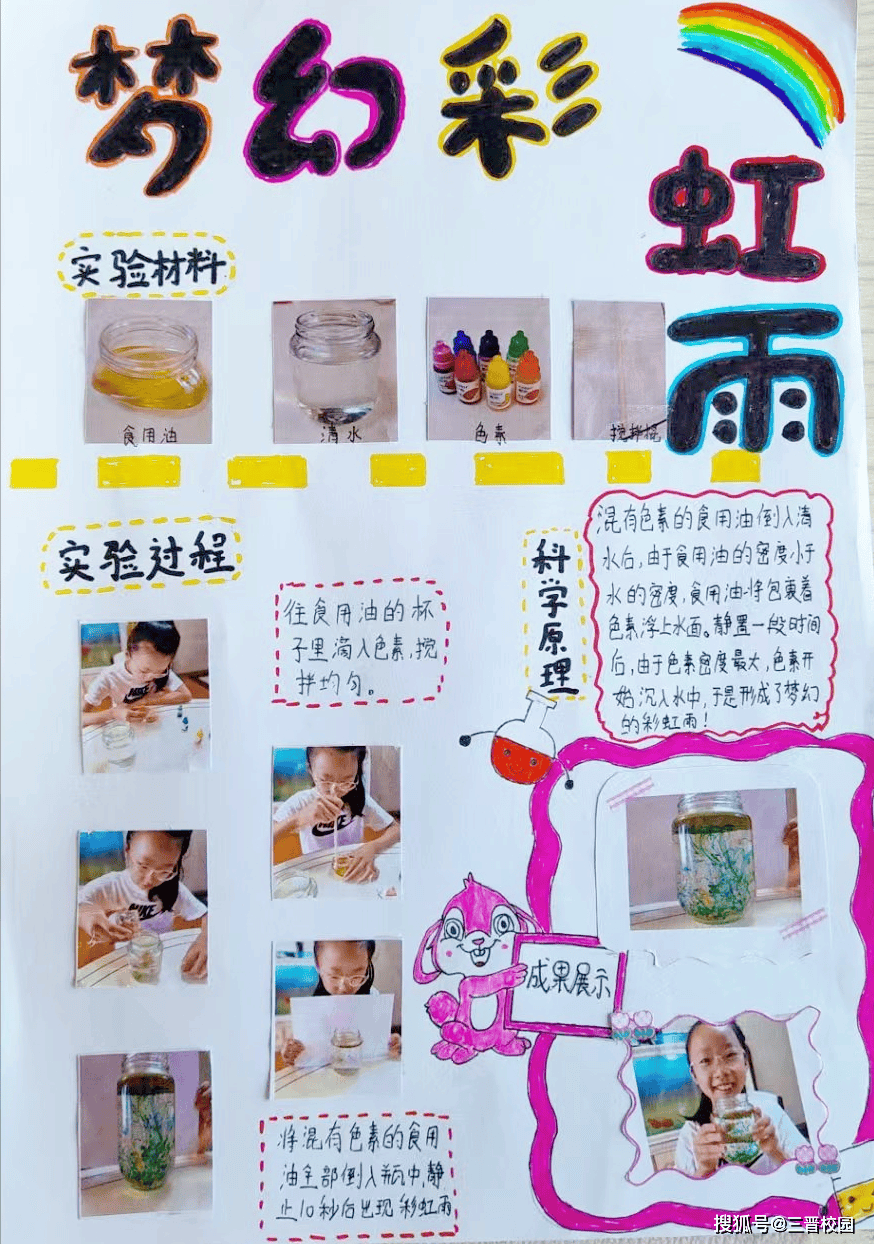 梦幻彩
虹
雨
实验材料
食用油
清水
色素
搅拌棍
实验过程
往食用油的杯
子里滴入色素,搅
拌均匀。
科学原理
混有色素的食用油倒入清
水后,由于食用油的密度小于
水的密度,食用油将包裹着
色素浮上水面。静置一段时间
后,由于色素密度最大,色素开
始沉入水中,于是形成了梦幻
的彩虹雨!
成果展示
将混有色素的食用
油全部倒入瓶中,静
止10秒后出现彩虹雨
搜狐号@三晋校园